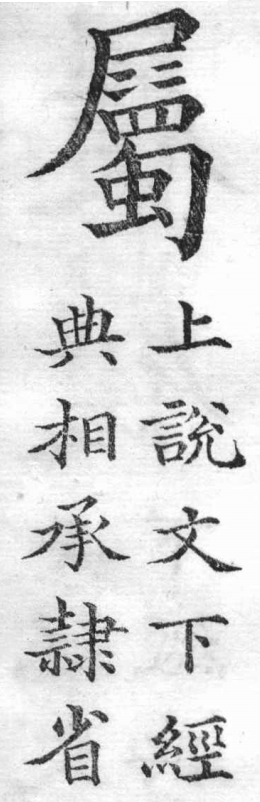 屬
上說文下經
典相承隸省